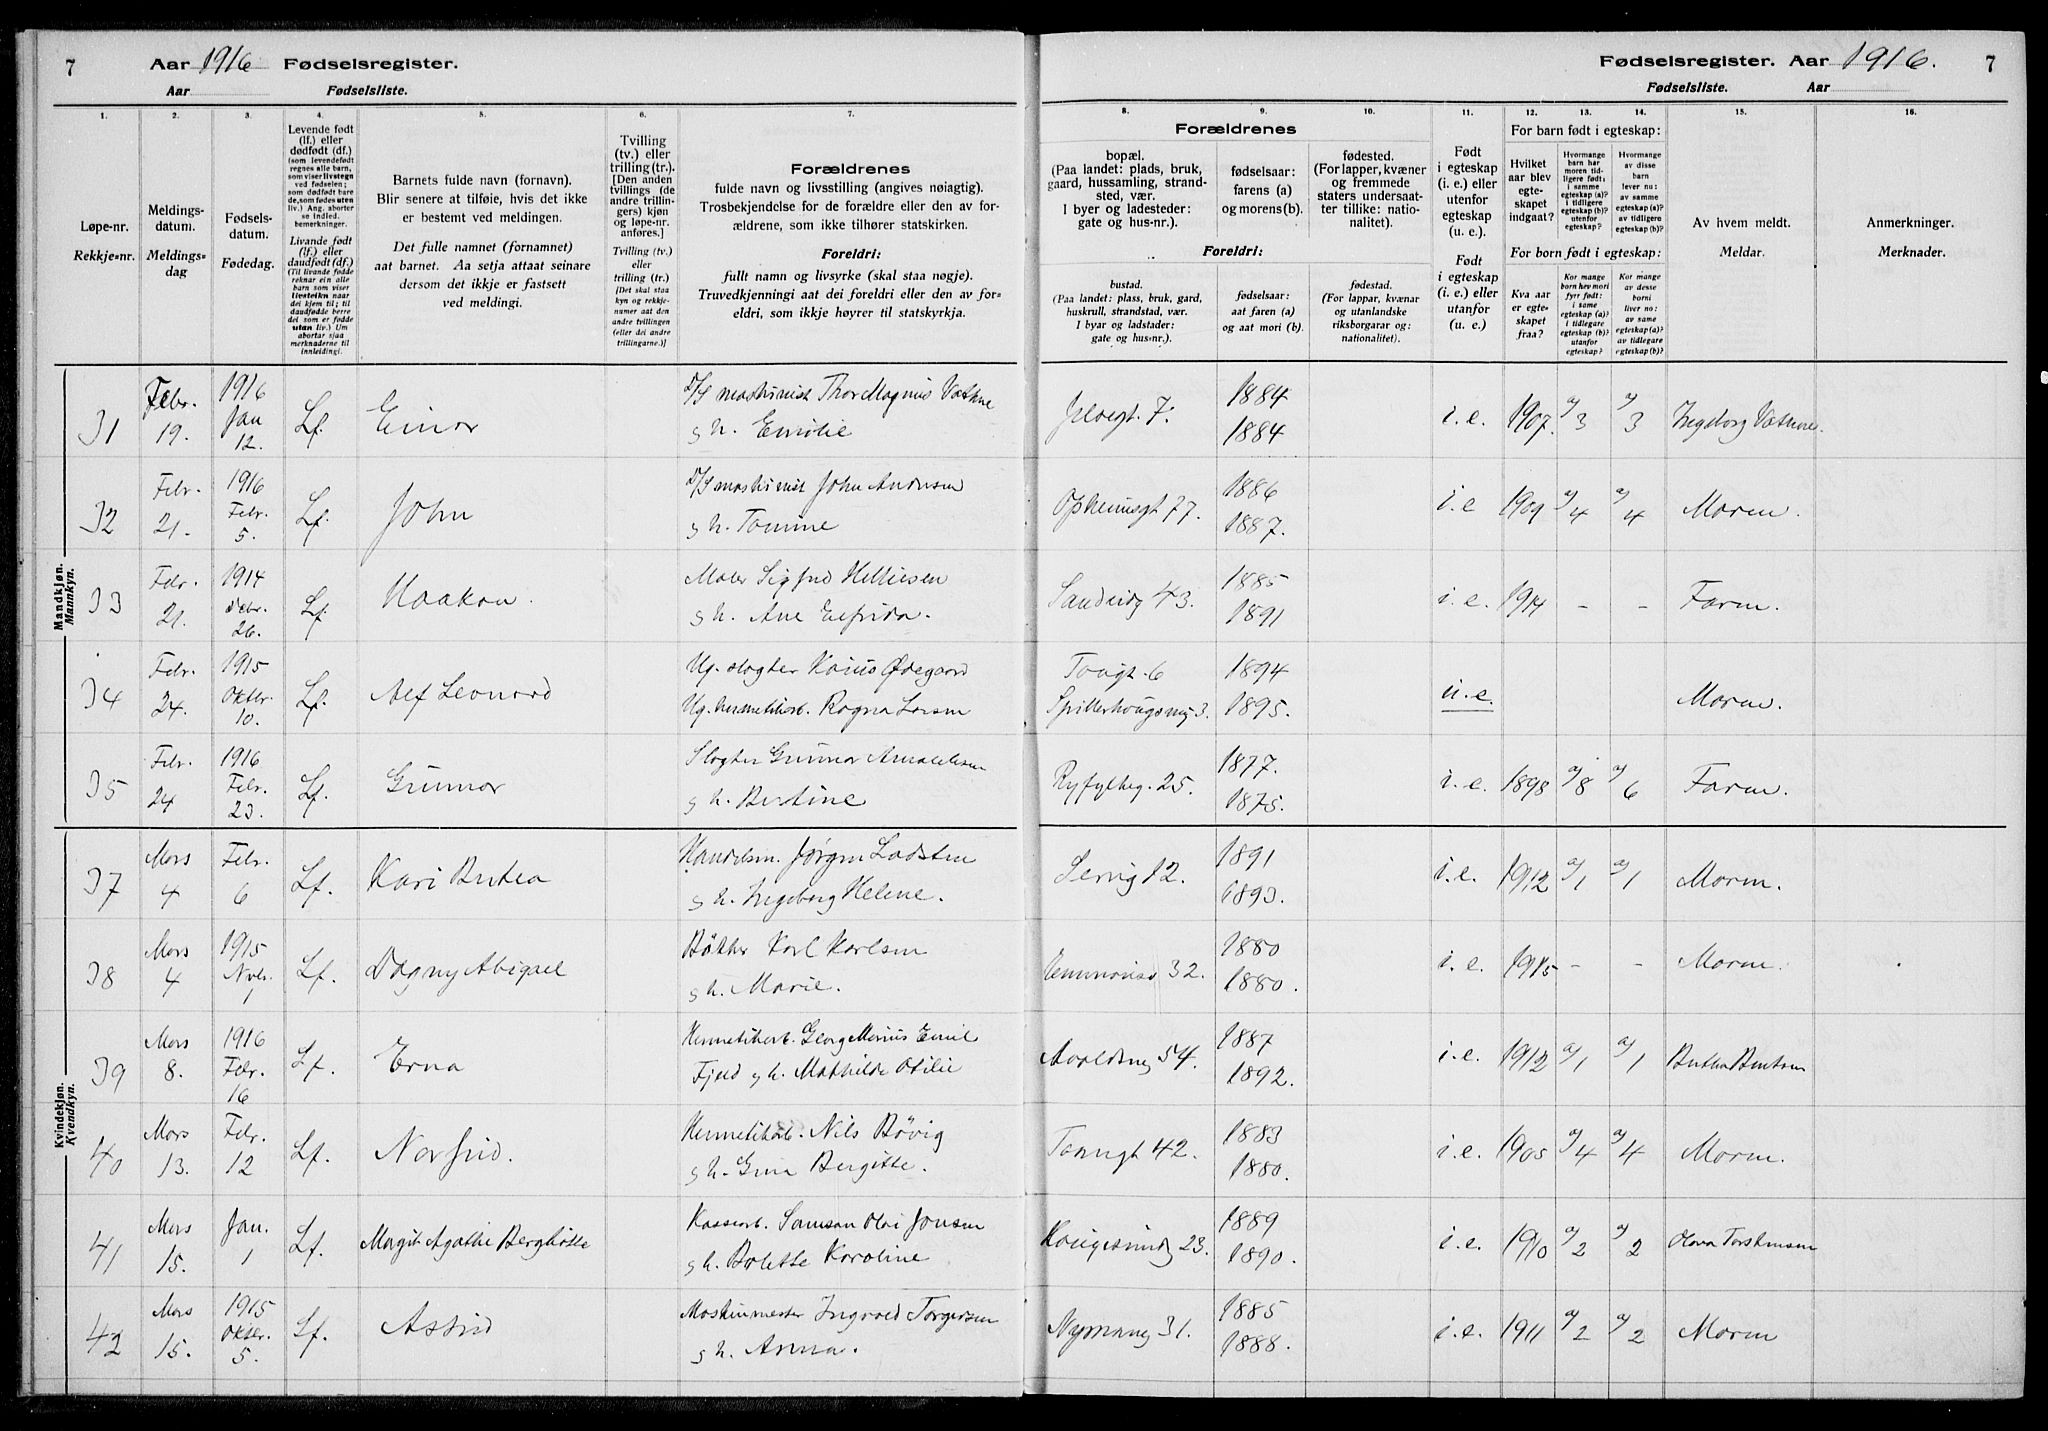 7 Aar 1916 Fødselsregister.
Aar Fødselsliste.
Fødselsregister. Aar 1916. 7
Fødselsliste. Aar
1. 2. 3. 4. 5. 6. 7. 8. 9. 10. 11. 12. 13. 14. 15. 16.
Løpe-nr.
Rekkje-nr.
Meldings-
datum.
Meldings-
dag
Fødsels-
datum.
Fødedag.
Levende født
(lf.) eller
dødfødt (df.)
(som levendefødt
regnes alle barn,
som viser livstegn
ved fødselen;
som dødfødt bare
de, som fødes uten
liv.) Ang. aborter
se indled.
bemerkninger.
Livande født
(lf.) eller
daudfødt (df.)
(Til livande fødde
reknar ein alle
barn som viser
livsteikn naar
dei kjem til; til
daudfødde berre
dei som er fødde
utan liv.) Um
abortar sjaa
merknaderne til
innleidingi.
Barnets fulde navn (fornavn).
Blir senere at tilføie, hvis det ikke
er bestemt ved meldingen.
Det fulle namnet (fornamnet)
aat barnet. Aa setja attaat seinare
dersom det ikkje er fastsett
ved meldingi.
Tvilling
(tv.) eller
trilling (tr.).
[Den anden
tvillings (de
andre trillin-
gers) kjøn
og løpe-nr.
anføres.]
Tvilling (tv.)
eller
trilling (tr.)
[Det skal staa
kyn og rekkje-
numer aat den
andre tvillingen
(eller dei andre
trillingarne.)]
Forældrenes
fulde navn og livsstilling (angives nøiagtig).
Trosbekjendelse for de forældre eller den av for-
ældrene, som ikke tilhører statskirken.
Foreldri:
fullt namn og livsyrke (skal staa nøgje).
Truvedkjenningi aat dei foreldri eller den av for-
eldri, som ikkje høyrer til statskyrkja.
Forældrenes
bopæl.
(Paa landet: plads, bruk,
gaard, hussamling, strand-
sted, vær.
I byer og ladesteder:
gate og hus-nr.).
fødselsaar:
farens (a)
og morens (b).
fødested.
(For lapper, kvæner
og fremmede
staters undersaat-
ter tillike: natio-
nalitet).
Foreldri:
bustad.
(Paa landet: plass, bruk, gard,
huskrull, strandstad, vær.
I byar og ladstader:
gate og hus-nr.).
fødselsaar:
aat faren (a)
og aat mori (b).
fødestad.
(For lappar, kvænar
og utanlandske
riksborgarar og:
nationalitet).
Født
i egteskap
(i. e.) eller
utenfor
egteskap
(u. e.).
Født
i egteskap
(i. e.) eller
utanfor
(u. e.)
For barn født i egteskap:
Hvilket
aar blev
egte-
skapet
indgaat?
Hvormange
barn har
moren tid-
ligere født:
i samme
egteskap (a)?
i tidligere
egteskap (b)?
utenfor
egteskap?
Hvormange
av disse
barn
lever nu:
av samme
egteskap (a)?
av tidligere
egteskap (b)?
For born født i egteskap:
Kva aar
er egte-
skapet
fraa?
Kor mange
born hev mori
fyrr født:
i same
egteskap (a)?
i tidlegare
egteskap (b)?
utanfor
egteskap?
Kor mange
av desse
borni
liver no:
av same
egteskap (a)?
av tidlegare
egteskap (b)?
Av hvem meldt.
Meldar.
Anmerkninger.
Merknader.
Mandkjøn.
Mannkyn.
31 Febr. 19. 1916 Jan 12. Lf. Einar D/S maskinist Thor Magnus Vathne
g h. Emilie 7. 1884 1884 i. e. 1907. a/3 a/3 Ingeborg Vathne.
32 Febr. 21. 1916 Febr. 5. Lf. John D/S maskinist John Andersen
g h. Tomine Opheimsgt 77. 1886 1887. i. e 1909 a/4 a/4 Moren.
33 Febr. 21. 1914 Debr. 26. Lf. Haakon. Maler Sigfred Helliesen
g h. Ane Elfrida. Sandvidg 43. 1885 1891 i. e. 1914 - - Faren.
34 Febr. 24. 1915 Oktbr. 10. Lf. Alf Leonard Ug. slagter Karius Ødegaard
Ug. hermetikarb. Ragna Larsen Tougt. 6
Spilderhougsveg 3. 1894 1895. u. e. Moren.
35 Febr. 24 1916 Febr. 23. Lf. Gunnar Slagter Gunnar
g h. Bertine Ryfylkeg. 25. 1877. 1875. i. e. 1898 a/8 a/6 Faren.
Kvindekjøn.
Kvendkyn.
37 Mars 4 Febr. 6 Lf. Kari Berthea Handelsm. Jørgen Ladsten
g h. Ingeborg Helene. 12. 1891 1893. i. e. 1912 a/1 a/1 Moren.
38 Mars 4 1915 Nvbr. 1 Lf. Dagny Abigael Bøkker Karl Karlsen
g h. Marie. 32. 1880 1880. i. e. 1915 - - Moren.
39 Mars 8. 1916 Febr. 16 Lf. Erna Hermetikarb. Georg Marius Emil
Fjeld g h. Mathilde Otilie Avaldsneg 54. 1887 1892. i. e. 1912 a/1 a/1 Berthea Berntsen
40 Mars 13. Febr. 12 Lf. Norfrid. Hermetikarb. Nils Bøvig
g h. Gina Bergitte. Taugt 42. 1883 1880. i. e. 1905 a/4 a/4 Moren.
41 Mars 15. Jan. 1 Lf. Margit Agathe Berghitte Kassearb. Samson Olai Jonsen
g h. Bolette Karoline Haugesundg 23. 1889 1890. i. e. 1910 a/2 a/2 Olava Torstensen
42 Mars 15. 1915 Oktbr. 5. Lf. Astrid Maskinmester Ingvald Torgersen
g h. Anna. Nymansg 31. 1885 1888. i. e. 1911 a/2 a/2 Moren